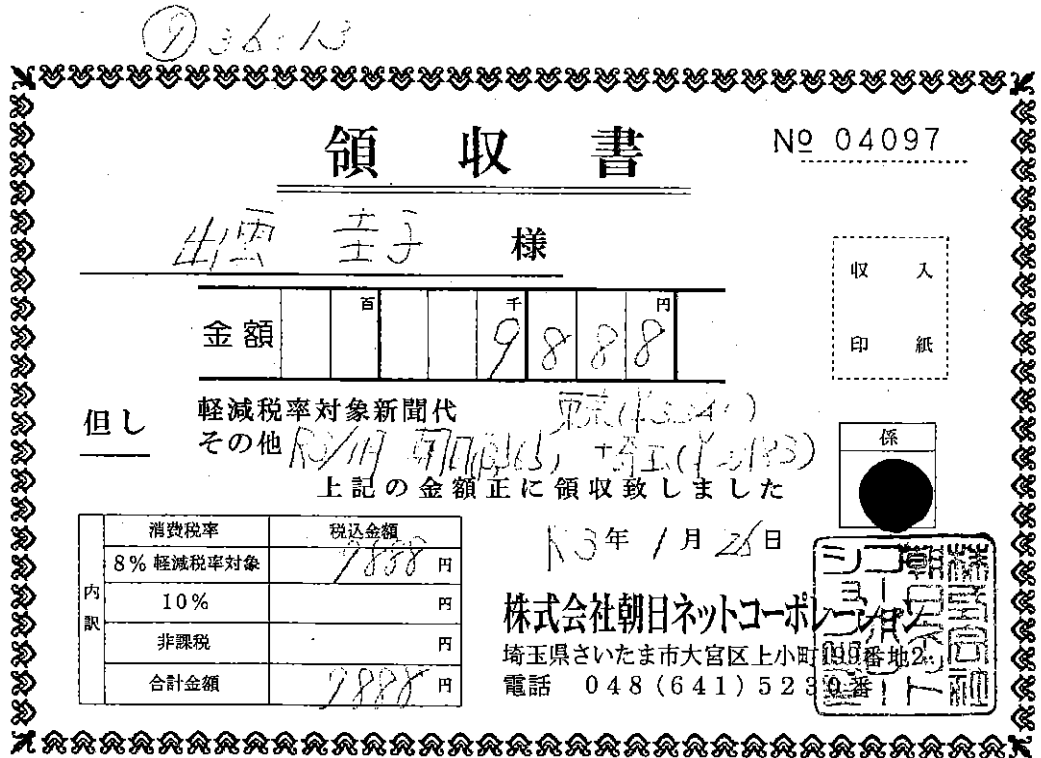 ⑨ 36:13
領収書
№ 04097
出雲 圭子 様
収入
印紙
金額 百 千 円
9888
但し
軽減税率対象新聞代
その他 R3/1月
上記の金額正に領収致しました
係
R3年 1月 26日
内訳
消費税率 税込金額
8% 軽減税率対象 9888 円
10% 円
非課税 円
合計金額 9888 円
株式会社朝日ネットコーポレーション
埼玉県さいたま市大宮区上小町199番地2
電話 048(641)5230番